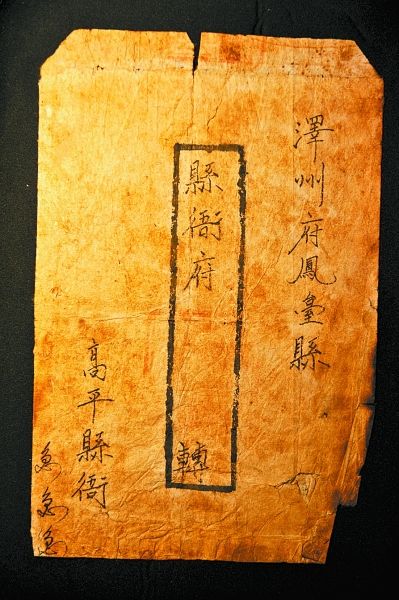 澤州府鳳臺縣
縣衙府 轉
高平縣衙
急急急